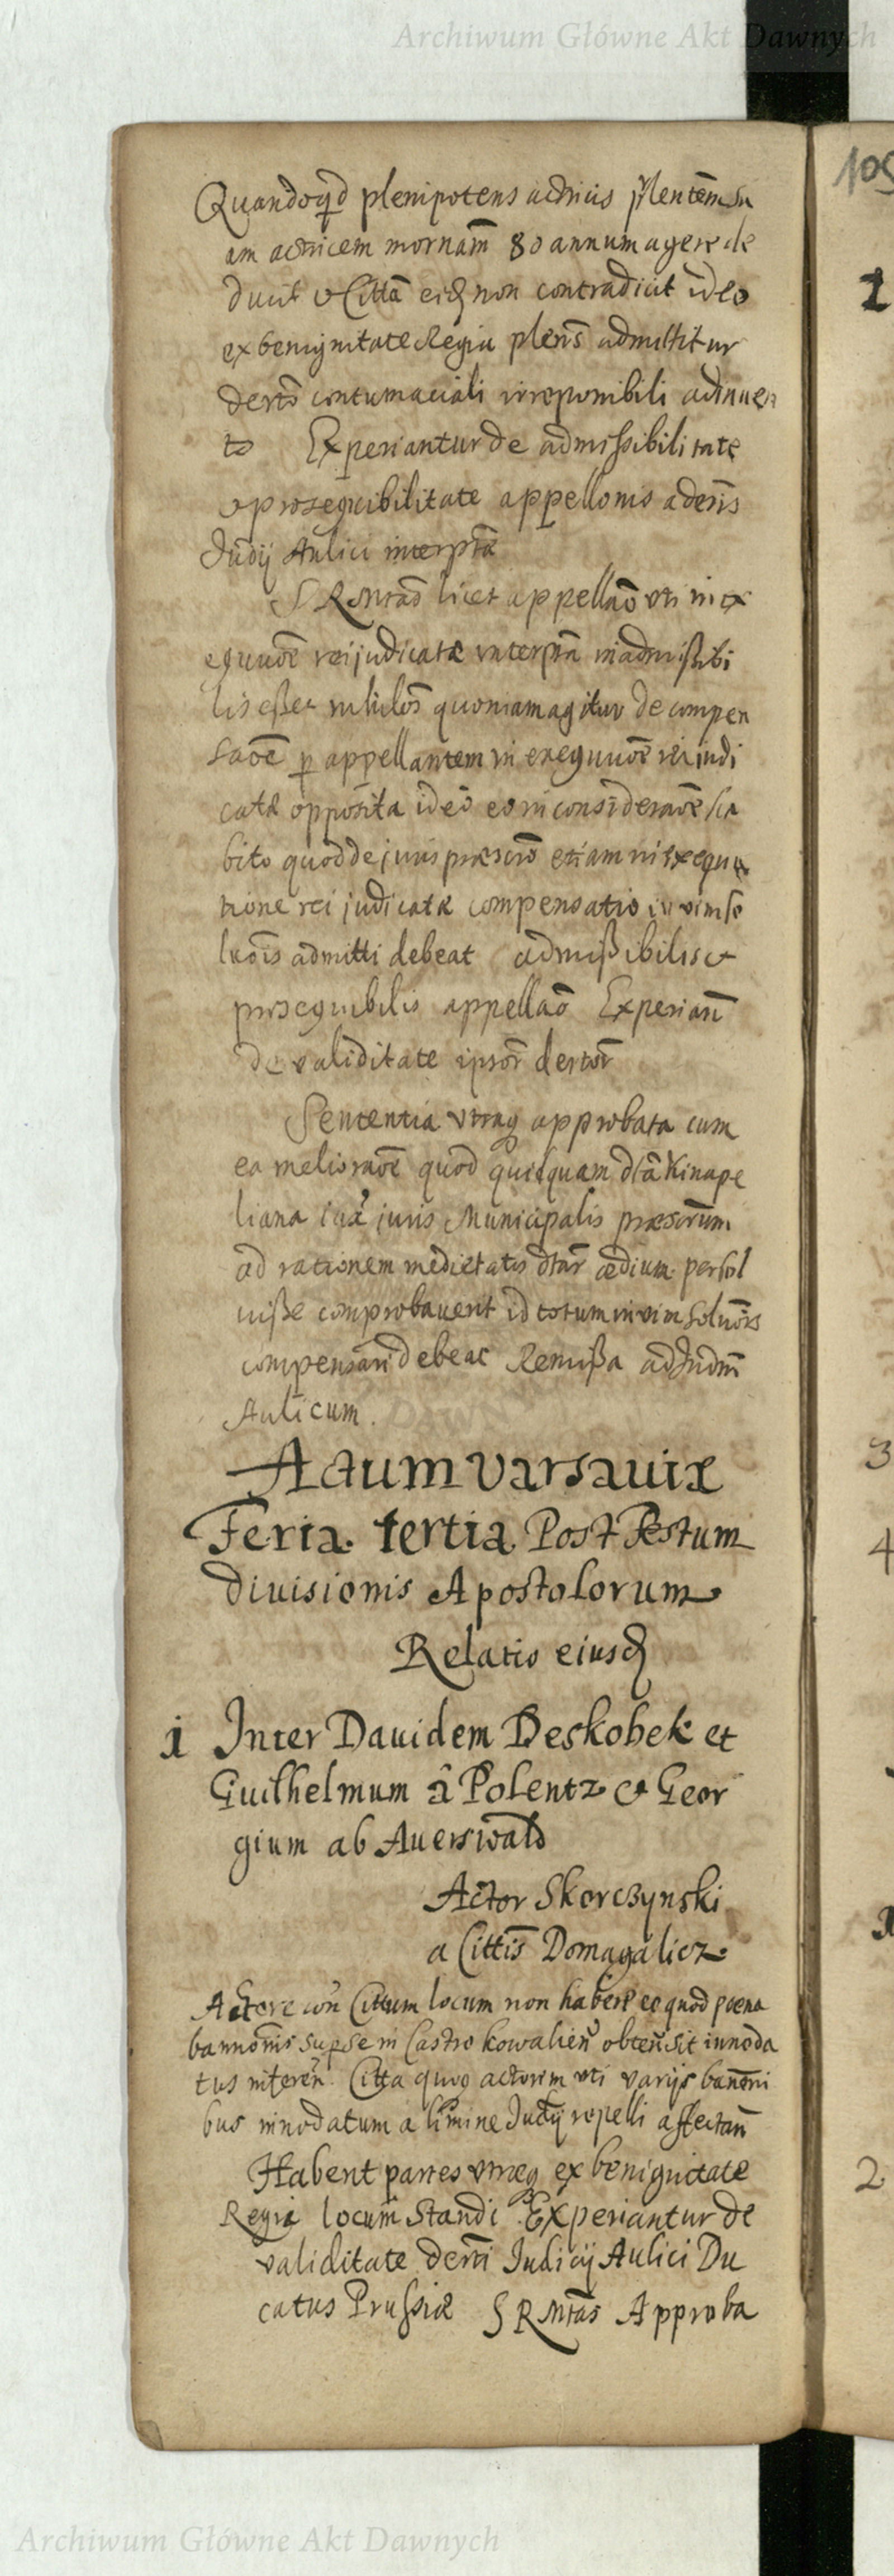 Archiwum Główne Akt Dawnych
109
Quandoqd plenipotens actricis plentem su
am actricem mornam 80 annum agere de
ducit et Citta eid non contradicit ideo
ex benignitate Regia plens admittitur
derto contumaciali irreponibili adinuen
to Experiantur de admissibilitate
et prosequibilitate appellonis a deris
Judij Aulici interpta
S R Mtas licet appellao uti in ex
equuoe rei judicatæ interpta inadmißibi
lis eßet nihilos quoniam agitur de compen
saoe p appellantem in exequuoe rei iudi
catæ opposita ideo eo in consideraoe ha
bito quod de juris præscro etiam in exequu
tione rei judicatæ compensatio in vim so
luois admitti debeat admißibilis et
prosequibilis appellao Experiant
de validitate ipsor dertor
Sententia utraq approbata cum
ea melioraoe quod quidquam dta Kinape
liana iux juris Municipalis præscrum
ad rationem medietatis dtar ædium persol
uiße comprobauerit id totum in vim soluois
compensari debeat Remißa ad Judm
Aulicum.
Actum Varsauiæ
Feria tertia Post Festum
diuisionis Apostolorum
Relatio eiusd
1 Inter Dauidem Deskobek et
Guilhelmum â Polentz et Geor
gium ab Auerswald
Actor Skorczynski
a Cittis Domagalicz
Actore con Cittum locum non habere eo quod poena
bannonis sup se in Castro Kowalien obten sit innoda
tus inferen Citta quoq actorem uti varijs banoni
bus innodatum a limine Judij repelli affectan
Habent partes utræq ex benignitate
Regia locum standi Experiantur de
validitate derti Judicij Aulici Du
catus Prussiæ S R Mtas Approba
1
3
4
2
Archiwum Główne Akt Dawnych